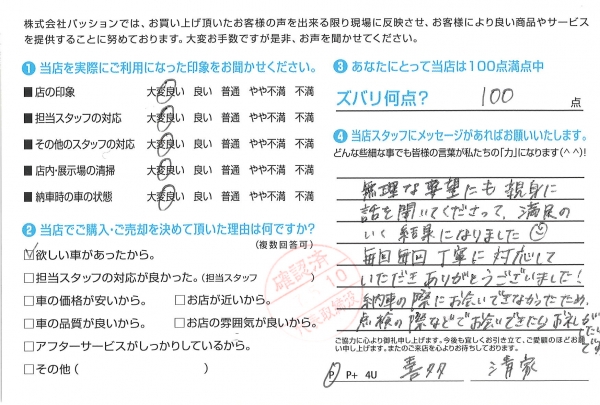 株式会社パッションでは、お買い上げ頂いたお客様の声を出来る限り現場に反映させ、お客様により良い商品やサービス
を提供することに努めております。大変お手数ですが是非、お声を聞かせてください。
❶ 当店を実際にご利用になった印象をお聞かせください。
■ 店の印象 大変良い 良い 普通 やや不満 不満
■ 担当スタッフの対応 大変良い 良い 普通 やや不満 不満
■ その他のスタッフの対応 大変良い 良い 普通 やや不満 不満
■ 店内・展示場の清掃 大変良い 良い 普通 やや不満 不満
■ 納車時の車の状態 大変良い 良い 普通 やや不満 不満
❷ 当店でご購入・ご売却を決めて頂いた理由は何ですか?
(複数回答可)
☑欲しい車があったから。
□担当スタッフの対応が良かった。(担当スタッフ )
□車の価格が安いから。 □お店が近いから。
□車の品質が良いから。 □お店の雰囲気が良いから。
□アフターサービスがしっかりしているから。
□その他( )
確認済
10
❸ あなたにとって当店は100点満点中
ズバリ何点? 100 点
❹ 当店スタッフにメッセージがあればお願いいたします。
どんな些細な事でも皆様の言葉が私たちの「力」になります(^^)!
無理な要望にも親身に
話を聞いてくださって、満足の
いく結果になりました
毎回毎回丁寧に対応して
いただきありがとうございました!
納車の際にお会いできなかったため、
点検の際などでお会いできたらお礼が
ご協力に心より御礼申し上げます。今後も宜しくお引き立て、ご愛顧のほどお願
い申し上げます。またのご来店を心よりお待ちしております。
P P+ 4U 喜多 清家